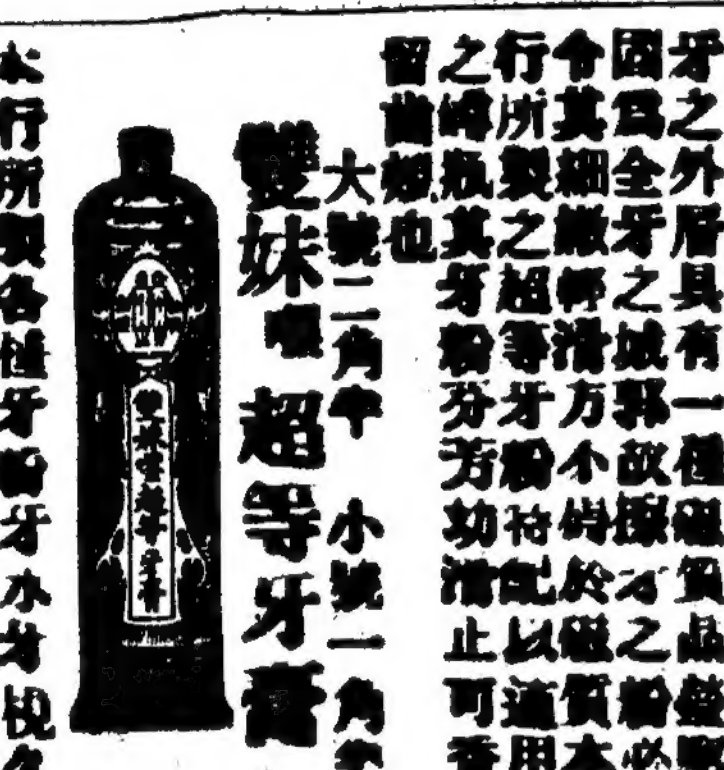 牙之外層具有一種磁質晶瑩
固爲全牙之城郭故擦牙之粉必
令其細緻輕滑方小傷於磁質本
行所製之超等牙粉特配以適用
之罇瓶其牙粉芬芳功滑止可香
留齒頰也
大號二角半 小號一角
雙妹嚜超等牙膏
雙妹嚜超等牙膏
本行所製各種牙粉牙水牙梘